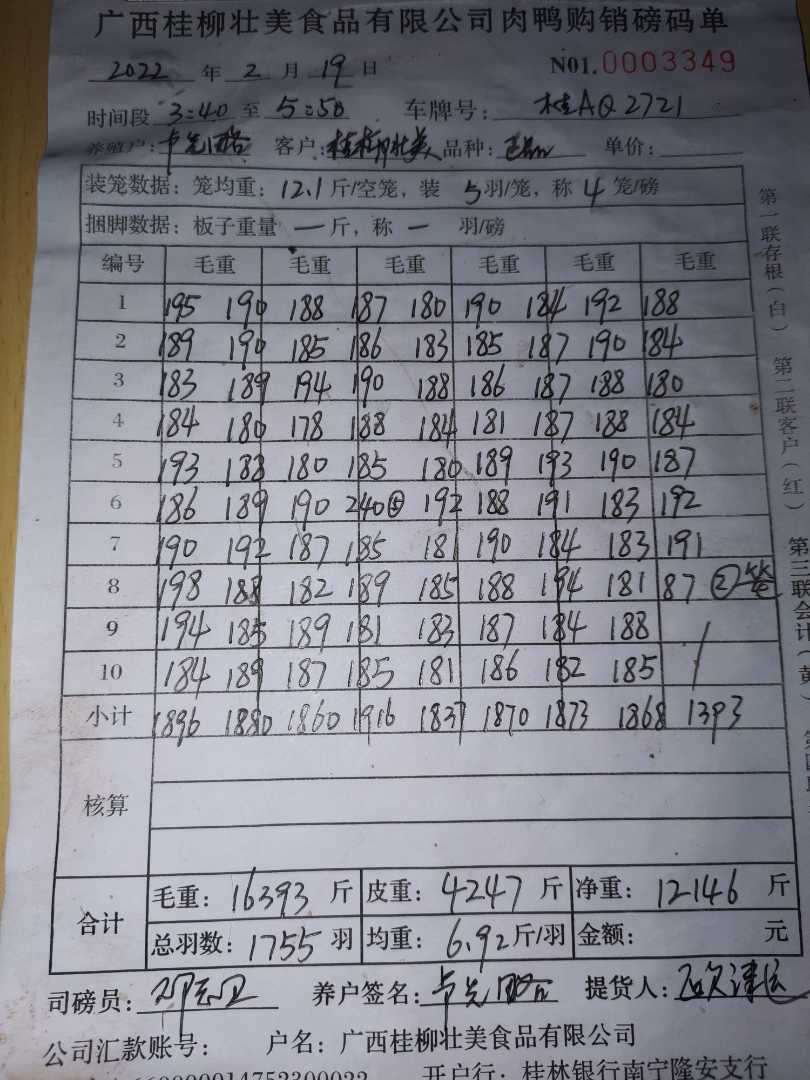 广西桂柳壮美食品有限公司肉鸭购销磅码单
2022 年 2 月 19 日 N01.0003349
时间段 3:40 至 5:50 车牌号: 桂AQ2721
养殖户: 客户: 桂柳壮美 品种: 单价:
装笼数据: 笼均重: 12.1 斤/空笼, 装 5 羽/笼, 称 4 笼/磅
捆脚数据: 板子重量 一 斤, 称 一 羽/磅
编号 毛重 毛重 毛重 毛重 毛重 毛重
1 195 190 188 187 180 190 184 192 188
2 189 190 185 186 183 185 187 190 184
3 183 189 194 190 188 186 187 188 180
4 184 180 178 188 184 181 187 188 184
5 193 188 180 185 180 189 193 190 187
6 186 189 190 240⑤ 192 188 191 183 192
7 190 192 187 185 181 190 184 183 191
8 198 188 182 189 185 188 194 181 87 ②
9 194 185 189 181 183 187 184 188
10 184 189 187 185 181 186 182 185
小计 1896 1880 1860 1916 1837 1870 1873 1868 1393
核算
合计
毛重: 16393 斤 皮重: 4247 斤 净重: 12146 斤
总羽数: 1755 羽 均重: 6.92 斤/羽 金额: 元
司磅员: 养户签名: 提货人:
公司汇款账号: 户名: 广西桂柳壮美食品有限公司
开户行: 桂林银行南宁隆安支行
第一联存根(白) 第二联客户(红) 第三联会计(黄)